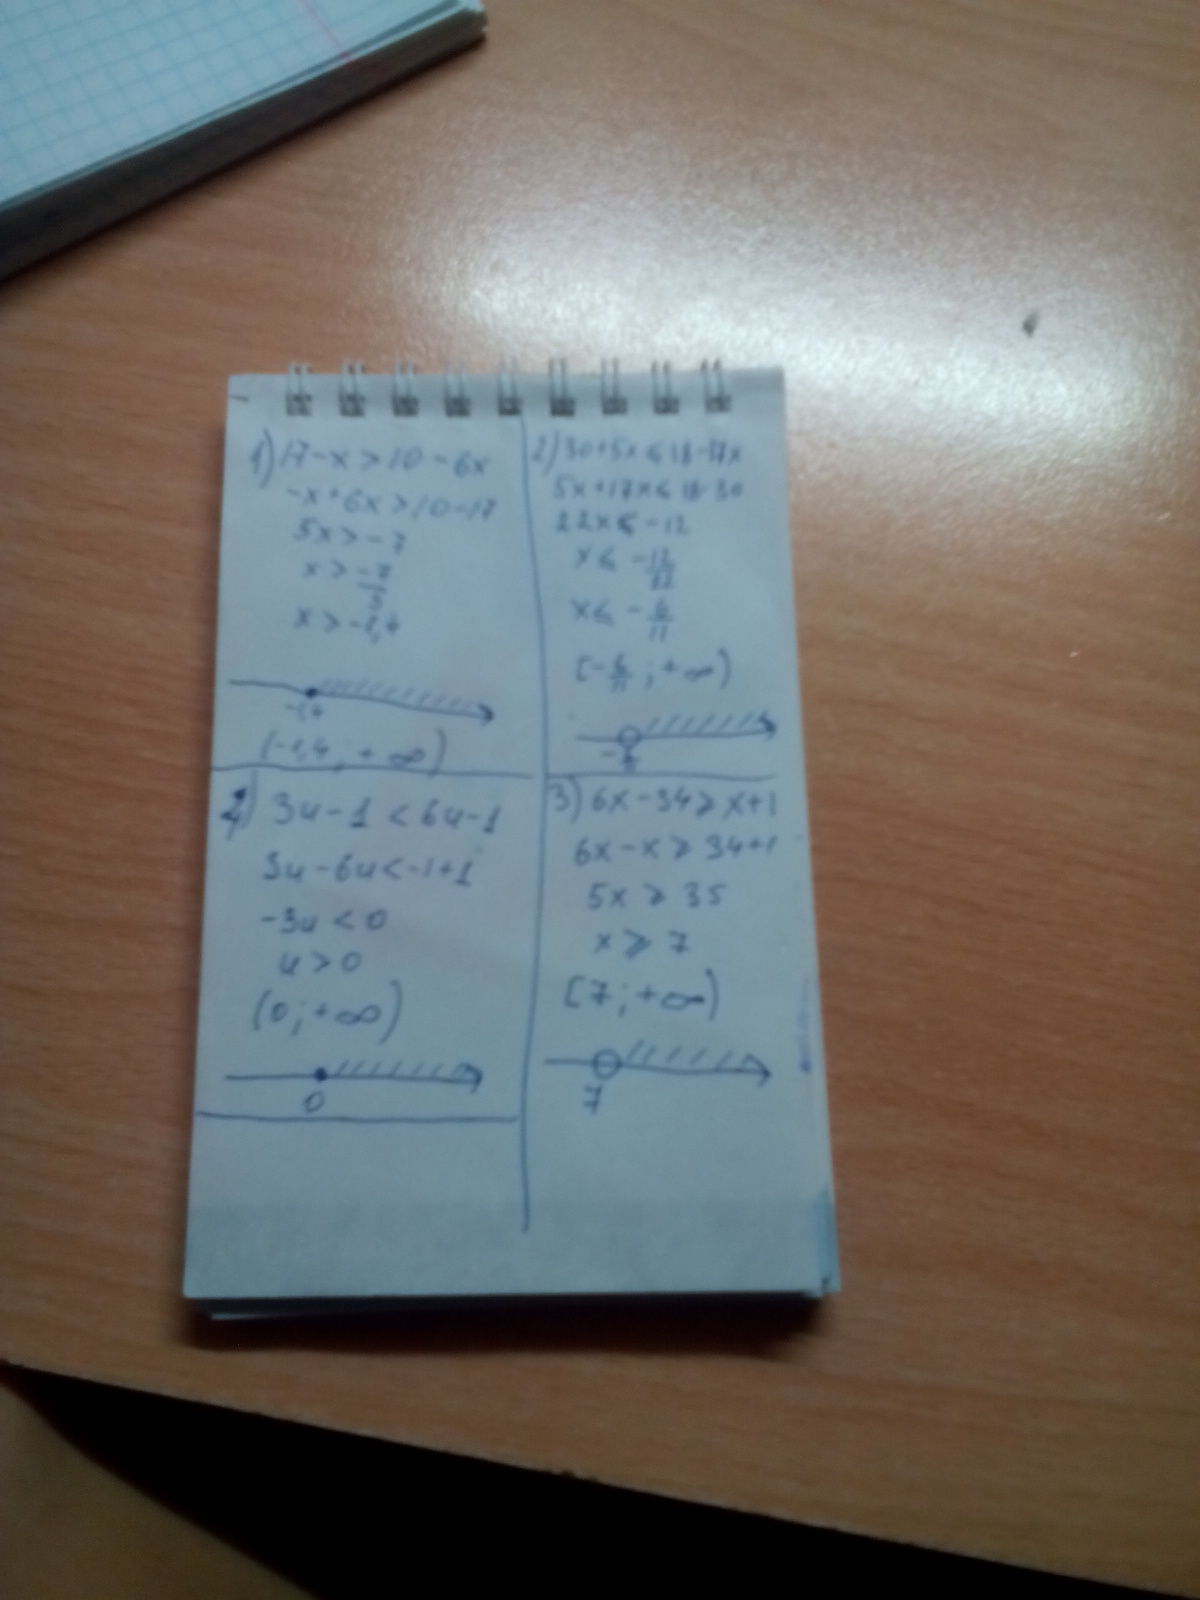 1) 17-x>10-6x
-x+6x>10-17
5x>-7
x>-7/5
x>-1,4
-1,4
(-1,4; +∞)
2) 30+5x⩽18-17x
5x+17x⩽18-30
22x⩽-12
x⩽-12/22
x⩽-6/11
[-6/11; +∞)
4) 3u-1<6u-1
3u-6u<-1+1
-3u<0
u>0
(0; +∞)
0
3) 6x-34⩾x+1
6x-x⩾34+1
5x⩾35
x⩾7
[7; +∞)
7